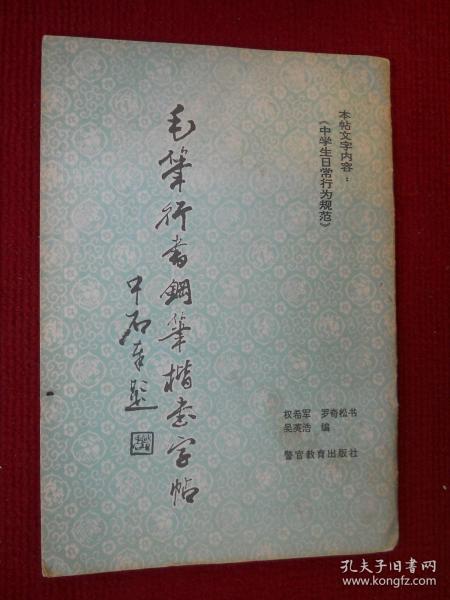 本帖文字内容：
《中学生日常行为规范》
毛筆行書鋼筆楷書字帖
中石奉题
权希军 罗奇松书
吴英浩 编
警官教育出版社
孔夫子旧书网
www.kongfz.com